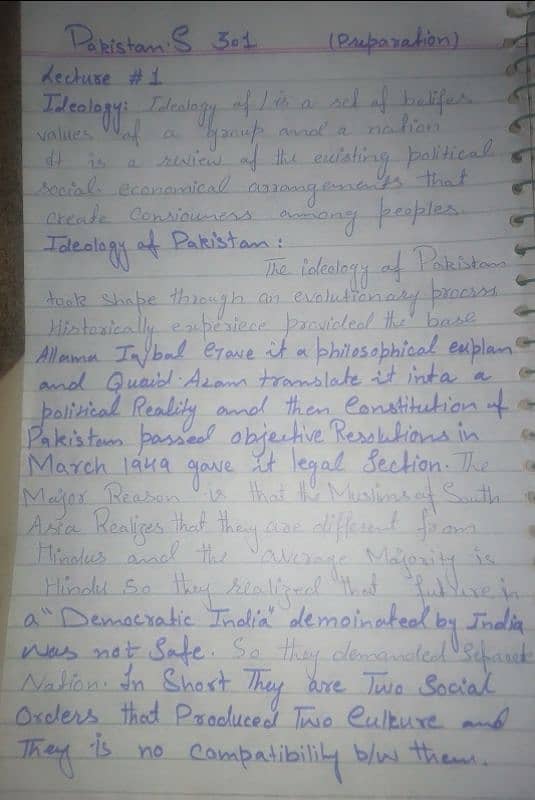 Pakistan.S 301 (Preparation)
Lecture #1
Ideology: Ideology of / is a set of belifes
values of a group and a nation
It is a review of the existing political
social economical arrangements that
create Consiouness among peoples.
Ideology of Pakistan:
The ideology of Pakistan
took shape through an evolutionary process
Historically experiece provided the base
Allama Iqbal Gave it a philosophical explan
and Quaid.Azam translate it into a
political Reality and then Constitution of
Pakistan passed objective Resolutions in
March 1949 gave it legal Section. The
Major Reason is that the Muslims of South
Asia Realizes that they are different from
Hindus and the average Majority is
Hindu So they realized that future in
a "Democratic India" demoinated by India
was not Safe. So they demanded
Nation. In Short They are Two Social
Orders that Produced Two Culture and
They is no Compatibility b/w them.